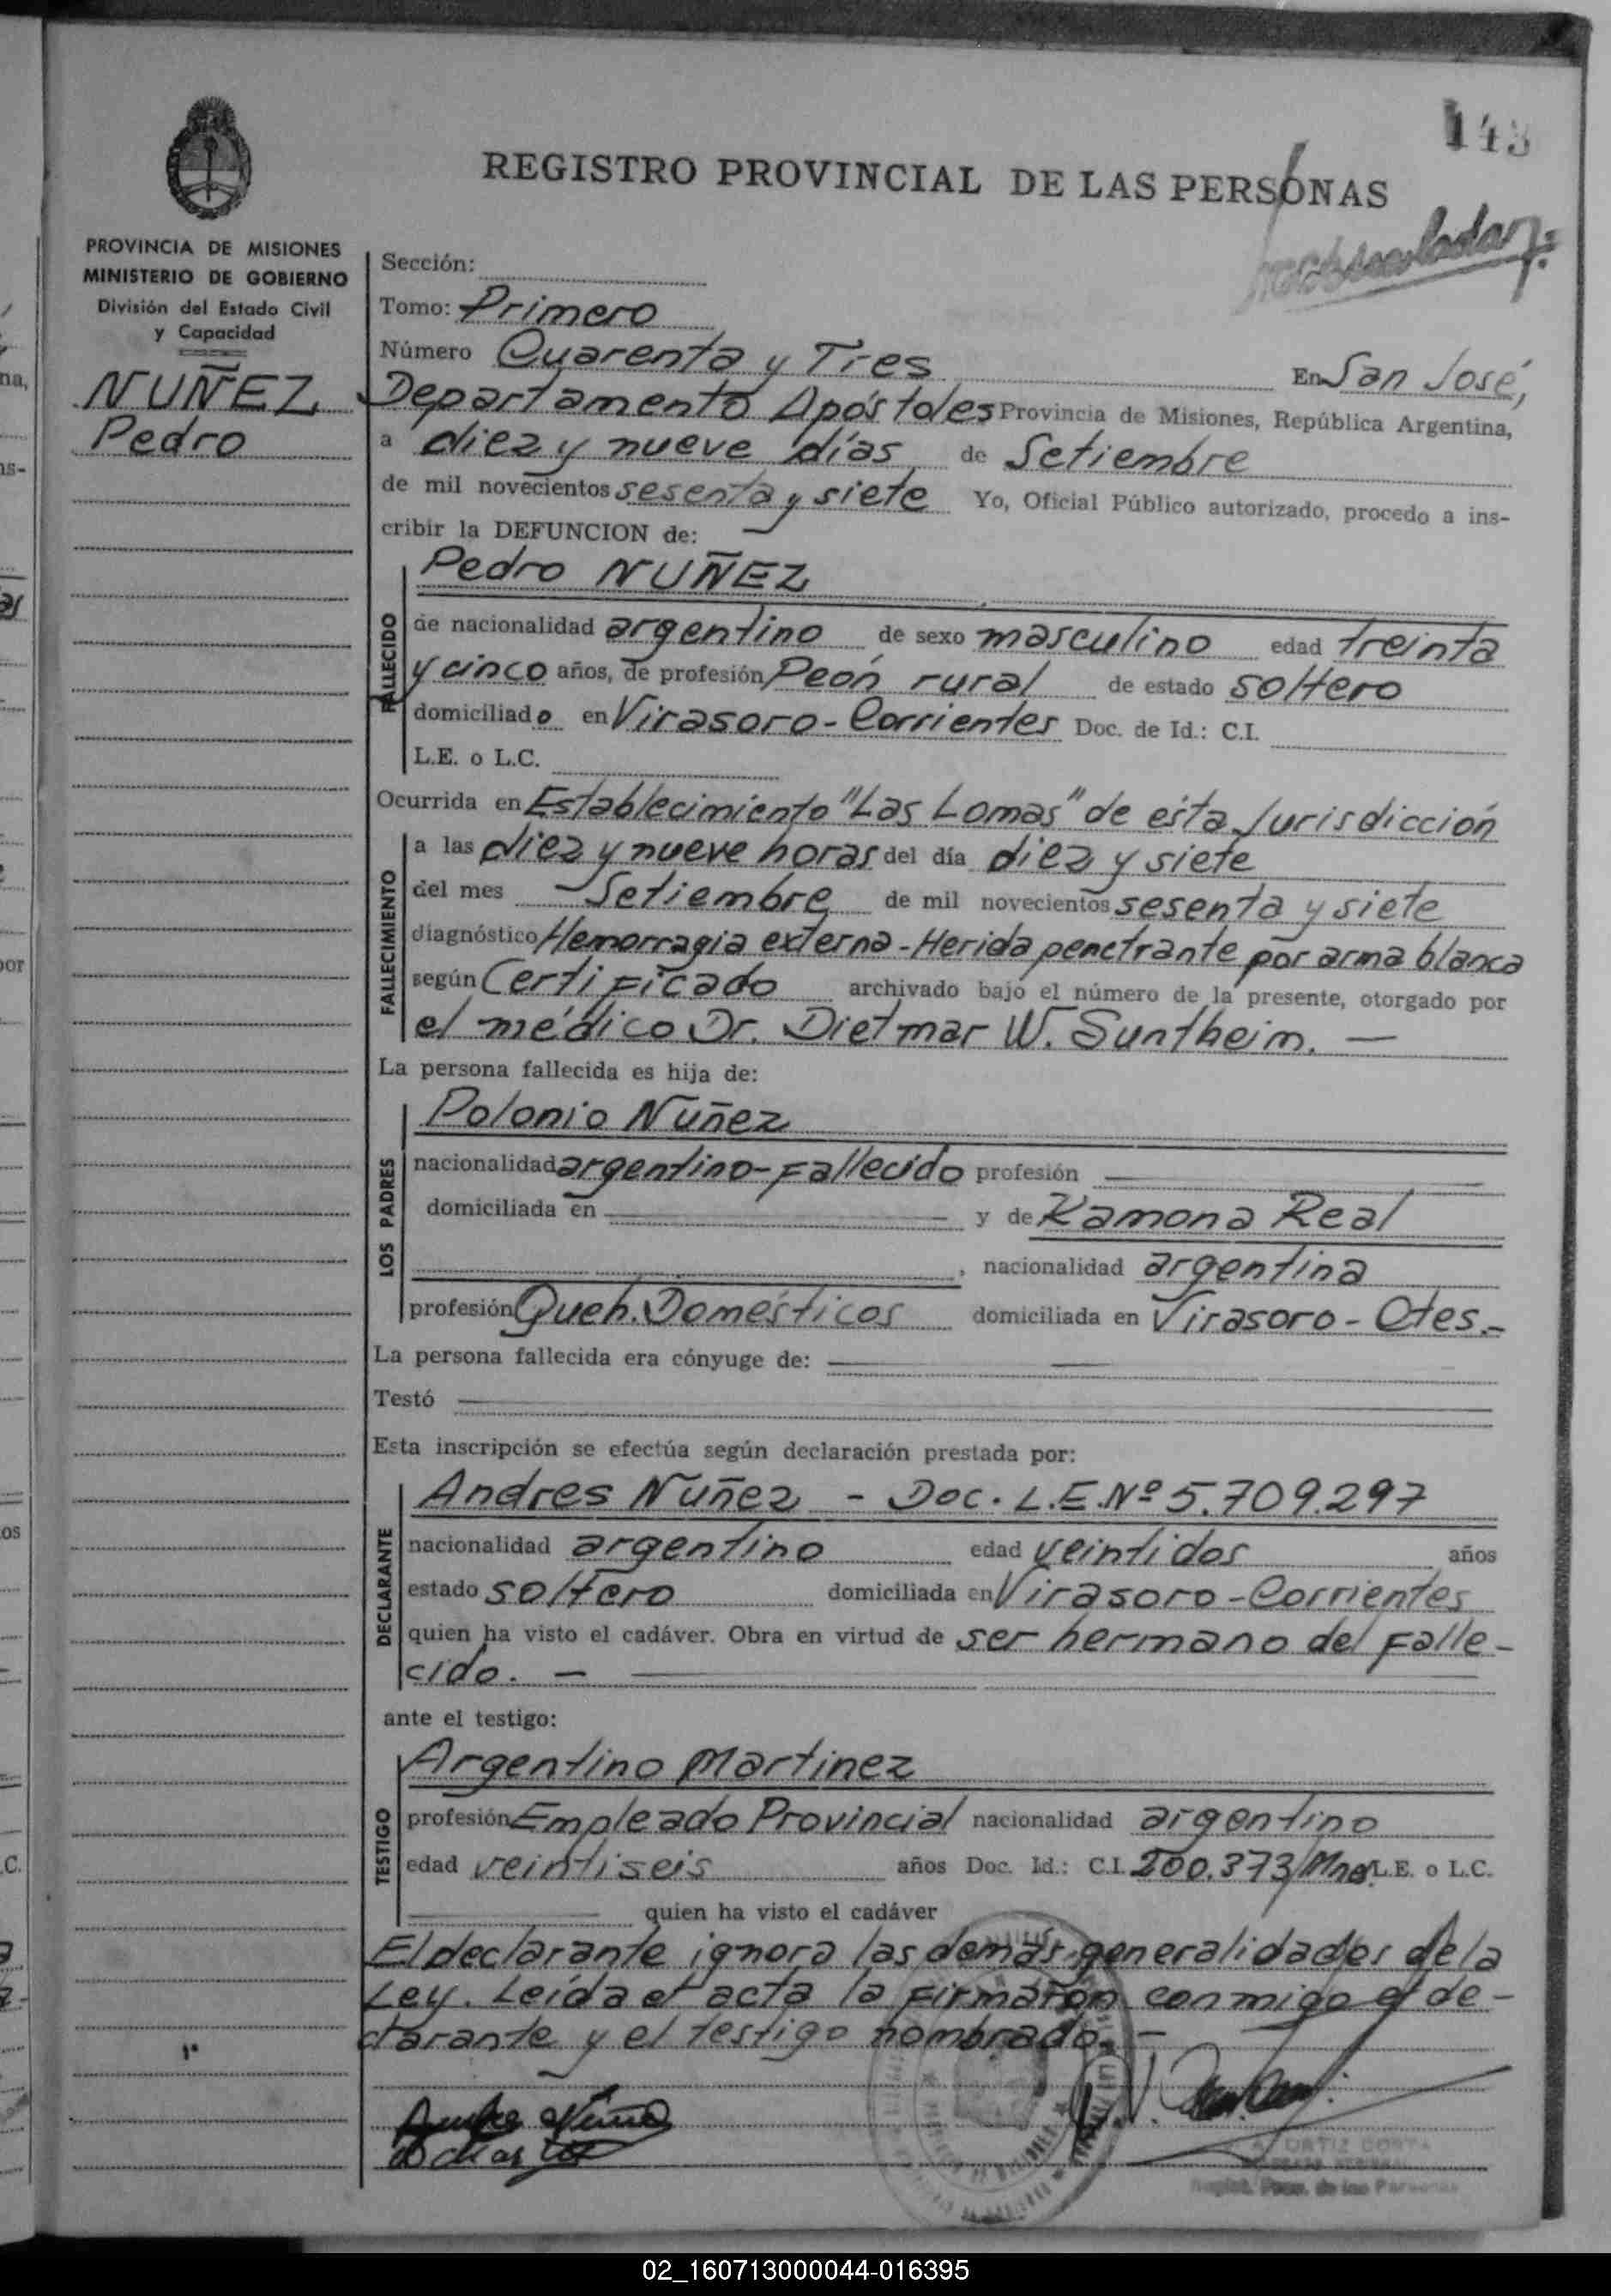 REGISTRO PROVINCIAL DE LAS PERSONAS
PROVINCIA DE MISIONES
MINISTERIO DE GOBIERNO
División del Estado Civil
y Capacidad
NUÑEZ
Pedro
Sección:
Tomo: Primero
Número Cuarenta y Tres En San José,
Departamento Apóstoles Provincia de Misiones, República Argentina,
a diez y nueve días de Setiembre
de mil novecientos sesenta y siete Yo, Oficial Público autorizado, procedo a ins-
cribir la DEFUNCION de:
FALLECIDO
Pedro NUÑEZ
de nacionalidad argentino de sexo masculino edad treinta
y cinco años, de profesión Peón rural de estado soltero
domiciliado en Virasoro - Corrientes Doc. de Id.: C.I.
L.E. o L.C.
Ocurrida en Establecimiento "Las Lomas" de esta Jurisdicción
FALLECIMIENTO
a las diez y nueve horas del día diez y siete
del mes Setiembre de mil novecientos sesenta y siete
diagnóstico Hemorragia externa - Herida penetrante por arma blanca
según Certificado archivado bajo el número de la presente, otorgado por
el médico Dr. Dietmar W. Suntheim. —
La persona fallecida es hija de:
LOS PADRES
Polonio Nuñez
nacionalidad argentino - Fallecido profesión
domiciliada en y de Ramona Real
, nacionalidad argentina
profesión Queh. Domésticos domiciliada en Virasoro - Ctes.-
La persona fallecida era cónyuge de:
Testó
Esta inscripción se efectúa según declaración prestada por:
DECLARANTE
Andres Nuñez - Doc. L.E. Nº 5.709.297
nacionalidad argentino edad veintidos años
estado soltero domiciliada en Virasoro - Corrientes
quien ha visto el cadáver. Obra en virtud de ser hermano del falle-
cido. —
ante el testigo:
TESTIGO
Argentino Martinez
profesión Empleado Provincial nacionalidad argentino
edad veintiseis años Doc. Id.: C.I. 200.373/Mnes. L.E. o L.C.
quien ha visto el cadáver
El declarante ignora las demás generalidades de la
Ley. Leída el acta la firmaron conmigo el de-
clarante y el testigo nombrado. —
1ª
ORTIZ COSTA
02_160713000044-016395